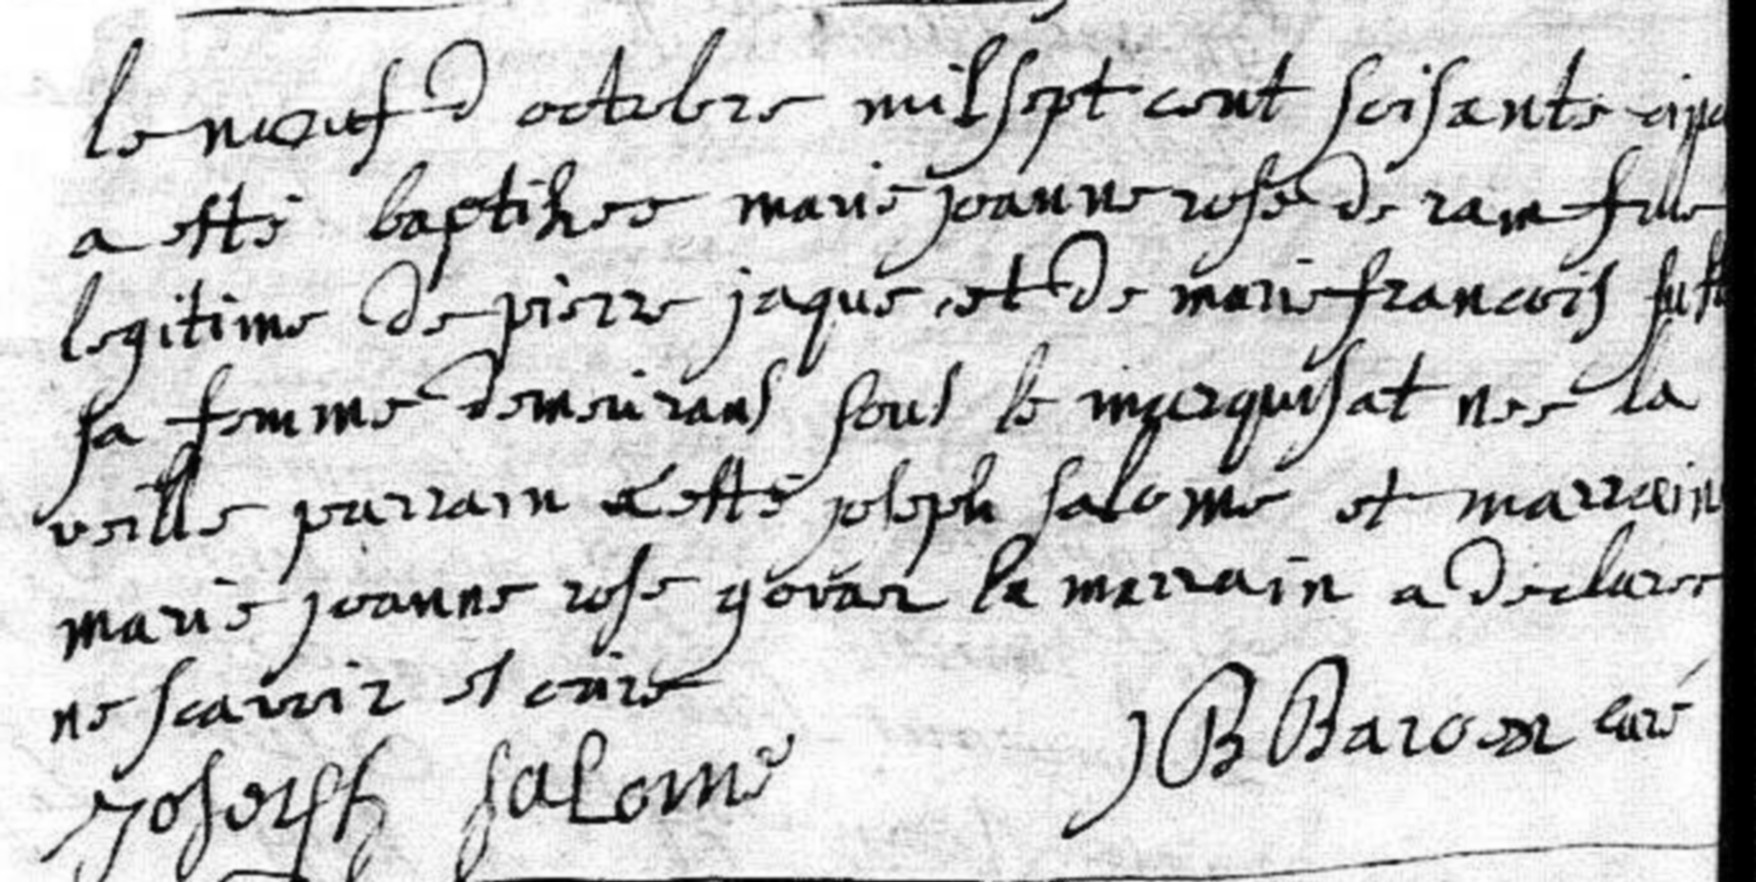 le nœuf d octobre mil sept cent soisante cinq
a esté baptizee marie joanne rose de ram fille
legitime de pierre jaque et de marie francois
sa femme demeurans sous le marquisat nee la
veille parrain a esté joseph salomé et marrain
marie joanne rose govar la marrain a declaree
ne scavoir escrire
Joseph Salomé J B Baroen curé